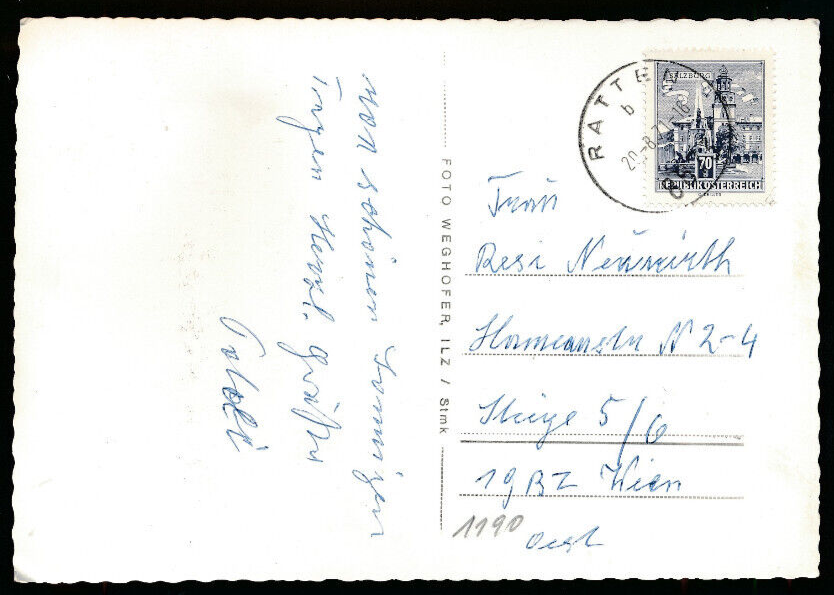 von schönen sonnigen
Tagen Herzl. Grüße
Poldi
FOTO WEGHOFER, ILZ / Stmk
SALZBURG
70
REPUBLIK ÖSTERREICH
RATTE
b
20.-8.71-16
Frau
Resi Neuwirth
N 2-4
Stiege 5/6
19 BZ Wien
1190
Oest